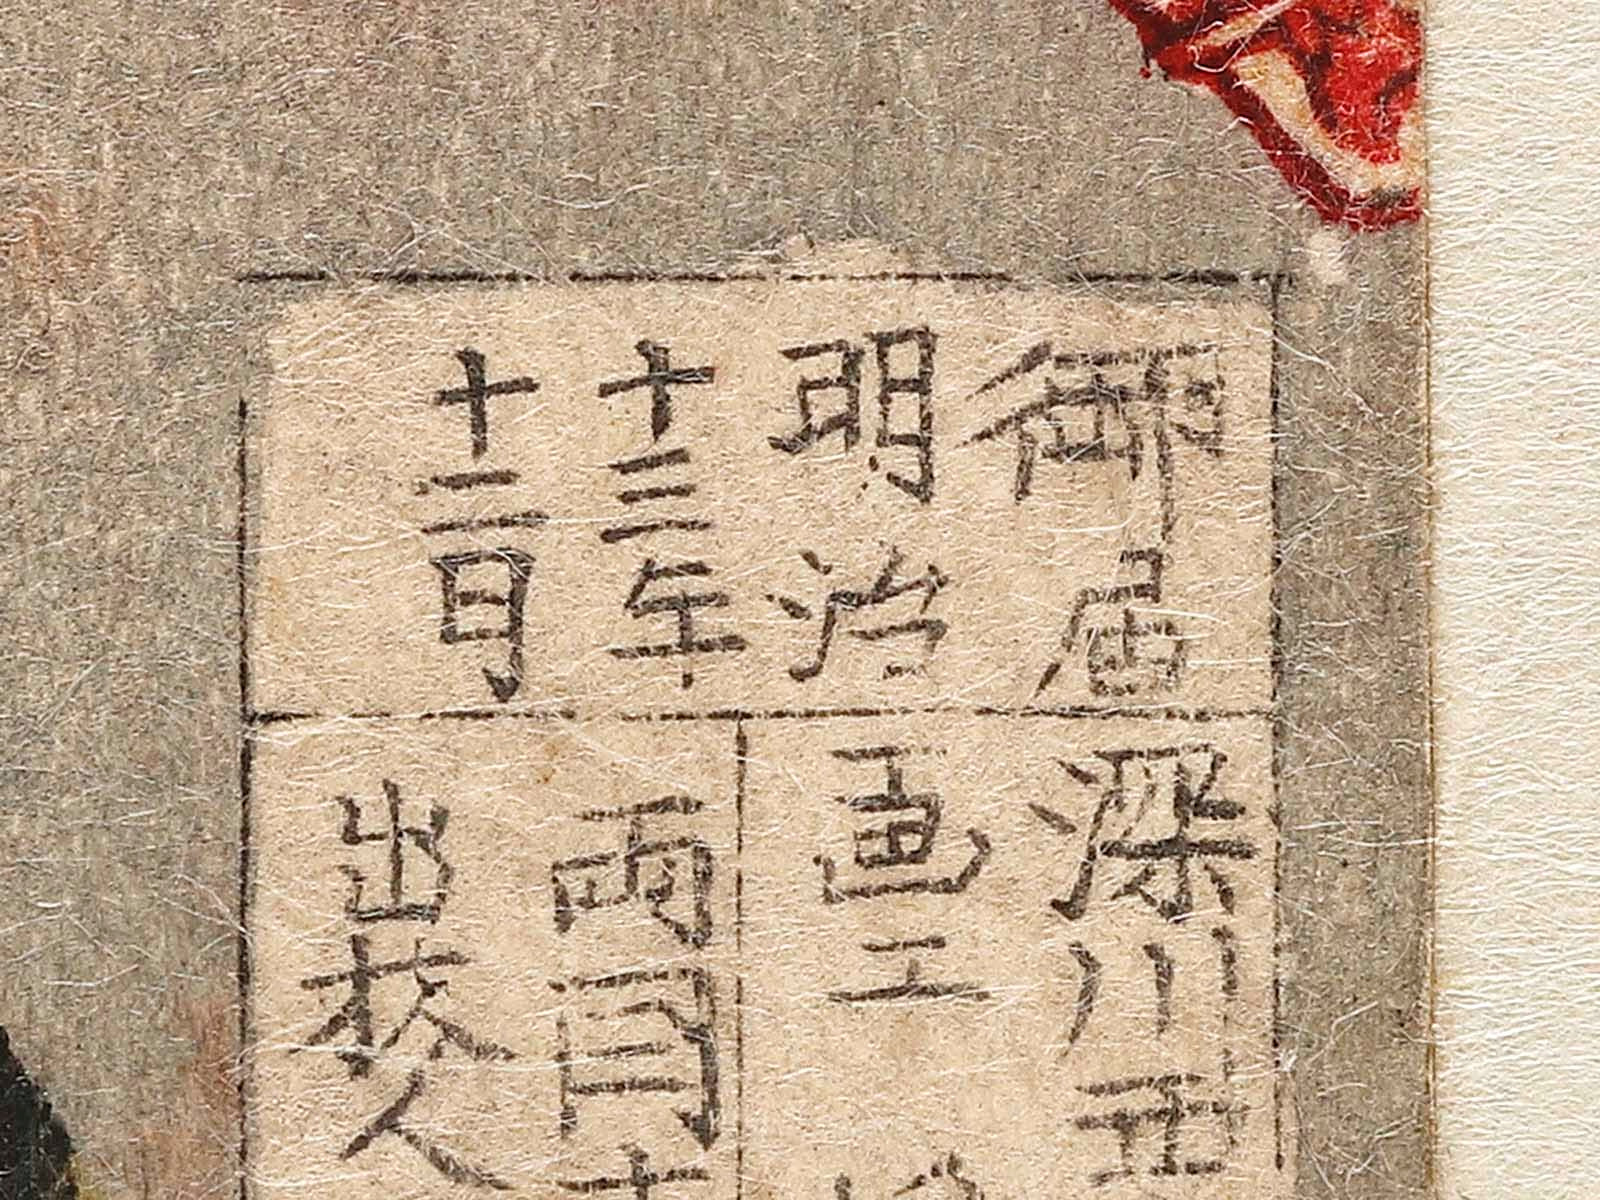 御届
明治
十三年
十二月
深川西
画工
両国
出板人